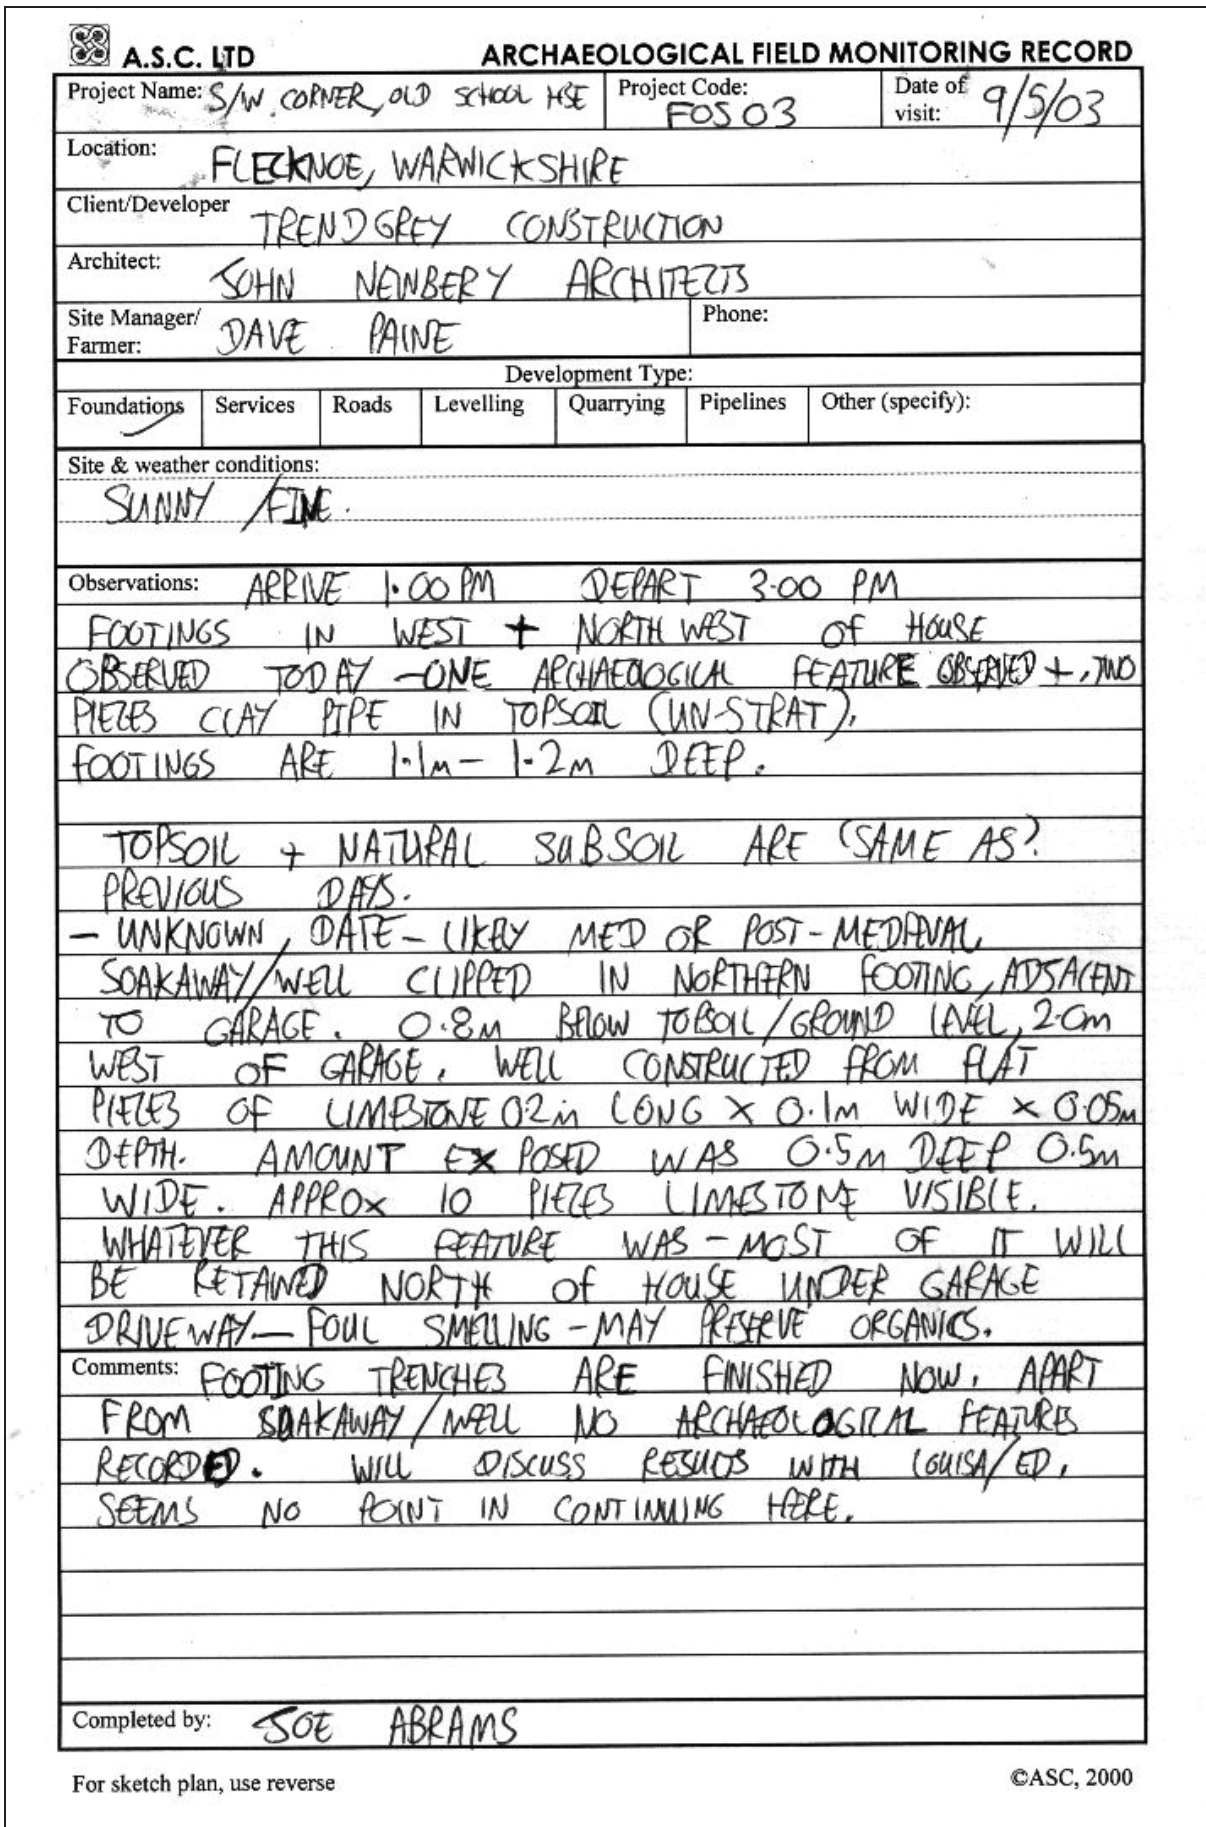 A.S.C. LTD ARCHAEOLOGICAL FIELD MONITORING RECORD
Project Name: S/W CORNER, OLD SCHOOL HSE Project Code: FOS03 Date of visit: 9/5/03
Location: FLECKNOE, WARWICKSHIRE
Client/Developer TRENDGREY CONSTRUCTION
Architect: JOHN NEWBERY ARCHITECTS
Site Manager/ Farmer: DAVE PAINE Phone:
Development Type:
Foundations Services Roads Levelling Quarrying Pipelines Other (specify):
Site & weather conditions:
SUNNY /FINE.
Observations: ARRIVE 1.00 PM DEPART 3.00 PM
FOOTINGS IN WEST + NORTH WEST OF HOUSE
OBSERVED TODAY - ONE ARCHAEOLOGICAL FEATURE OBSERVED +, TWO
PIECES CLAY PIPE IN TOPSOIL (UN-STRAT).
FOOTINGS ARE 1.1m - 1.2m DEEP.
TOPSOIL + NATURAL SUBSOIL ARE 'SAME AS'
PREVIOUS DAYS.
- UNKNOWN, DATE - LIKELY MED OR POST-MEDIEVAL
SOAKAWAY/WELL CLIPPED IN NORTHERN FOOTING, ADJACENT
TO GARAGE. 0.8m BELOW TOPSOIL/GROUND LEVEL, 2.0m
WEST OF GARAGE. WELL CONSTRUCTED FROM FLAT
PIECES OF LIMESTONE 0.2m LONG X 0.1m WIDE X 0.05m
DEPTH. AMOUNT EXPOSED WAS 0.5m DEEP 0.5m
WIDE. APPROX 10 PIECES LIMESTONE VISIBLE.
WHATEVER THIS FEATURE WAS - MOST OF IT WILL
BE RETAINED NORTH OF HOUSE UNDER GARAGE
DRIVEWAY - FOUL SMELLING - MAY PRESERVE ORGANICS.
Comments: FOOTING TRENCHES ARE FINISHED NOW. APART
FROM SOAKAWAY/WELL NO ARCHAEOLOGICAL FEATURES
RECORDED. WILL DISCUSS RESULTS WITH LOUISA/ED.
SEEMS NO POINT IN CONTINUING HERE.
Completed by: JOE ABRAMS
For sketch plan, use reverse ©ASC, 2000